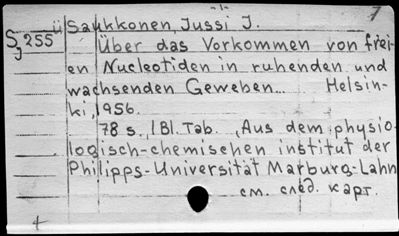 -1-
7
ü Saukkonen, Jussi J.
S 255
J
Über das Vorkommen von frei-
en Nucleotiden in ruhenden und
wachsenden Geweben... Helsin-
ki, 1956.
78 s., 1 Bl. Tab. „Aus dem physio-
logisch-chemischen institut der
Philipps-Universität Marburg-Lahn
см. след. карт.